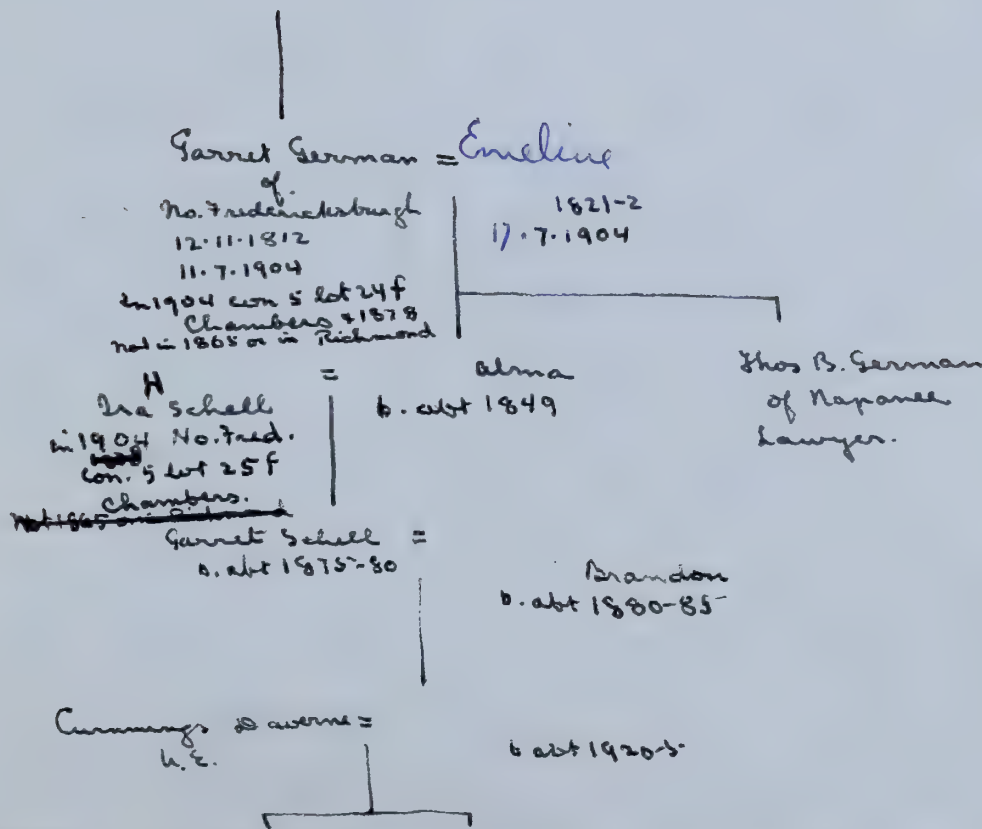 Garret German = Emeline
of
No. Fredericksburgh
12.11.1812
11.7.1904
In 1904 con 5 lot 24 f
Chambers & 1878
not in 1865 or in Richmond
1821-2
17.7.1904
H
Ira Schell
in 1904 No. Fred.
con. 5 lot 25 f
Chambers.
=
alma
b. abt 1849
Thos B. German
of Napanee
Lawyer.
Garret Schell =
b. abt 1875-80
Brandon
b. abt 1880-85
Cummings Daverne =
U.E.
b abt 1920-5